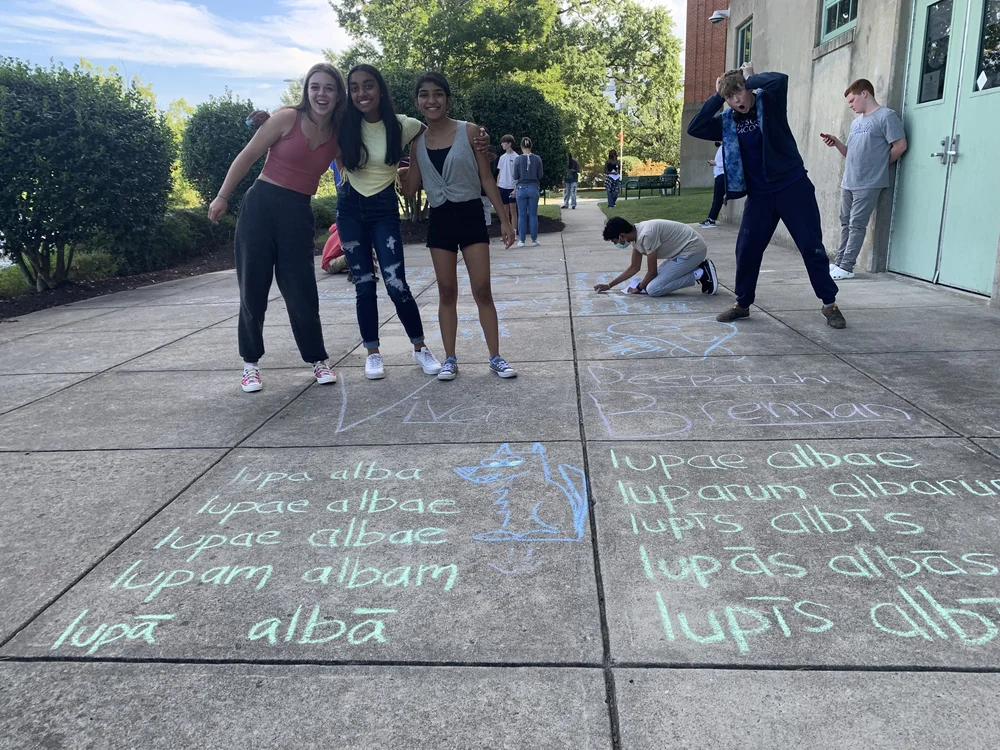 Viva
Deepanshi
Brennan
lupa alba
lupae albae
lupae albae
lupam albam
lupā albā
lupae albae
luparum albarum
lupīs albīs
lupās albās
lupīs albīs